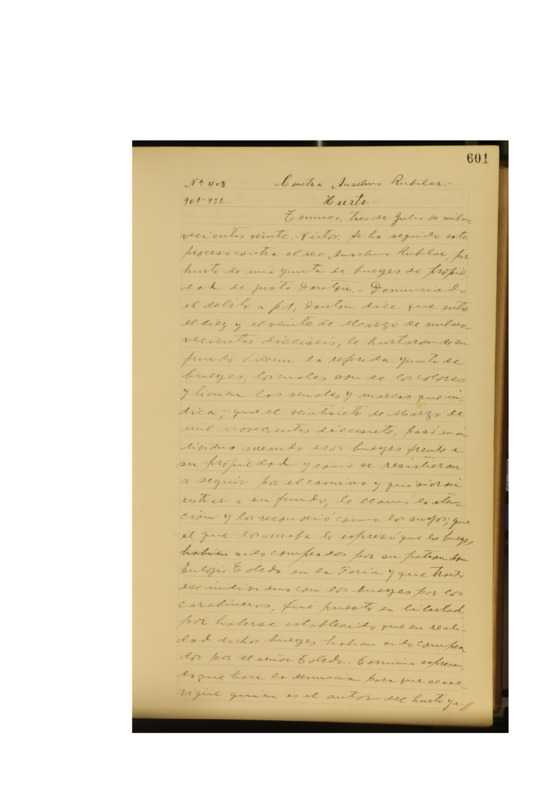 601
Nº 408 Contra Anselmo Rubilar.-
901-920. Hurto.-
Temuco, tres de Julio de mil no-
vecientos veinte. Vistos: Se ha seguido este
proceso contra el reo, Anselmo Rubilar, por
hurto de una yunta de bueyes de propie-
dad de Justo Dauton.- Denunciando
el delito a f 1, Dauton dice que entre
el diez y el veinte de Marzo de mil no-
vecientos dieciseis, le hurtaron de su
fundo Vilcun la referida yunta de
bueyes, los cuales son de los colores
y tienen las señales y marcas que in-
dica; que el veintisiete de Marzo de
mil novecientos diecisiete, pasó un in-
dividuo arreando esos bueyes frente a
su propiedad y como se resistieran
a seguir por el camino y quisieran
entrar a su fundo, le llamó la aten-
ción y los reconoció como los suyos; que
el que los arreaba le espresó que los bueyes
habian sido comprados por su patron don
Eulojio Toledo en la Feria y que traido
ese individuo con los bueyes por los
carabineros, fué puesto en libertad
por haberse establecido que en reali-
dad dichos bueyes habian sido compra-
dos por el señor Toledo.- Termina espresan-
do que hace la denuncia para que se ave-
rigüe quien es el autor del hurto ya